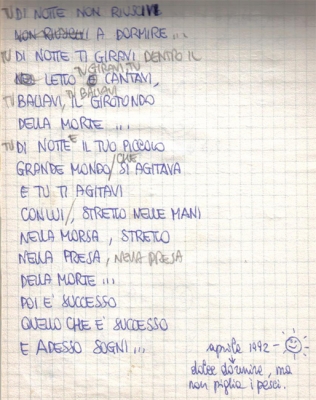 TU DI NOTTE NON RIUSCIVI
NON RIUSCIVI A DORMIRE...
TU DI NOTTE TI GIRAVI DENTRO IL
LETTO E CANTAVI,
TI GIRAVI TU
TU BALLAVI, IL GIROTONDO
TU BALLAVI
DELLA MORTE ...
TU DI NOTTE E IL TUO PICCOLO
GRANDE MONDO / SI AGITAVA
CHE
E TU TI AGITAVI
CON LUI /, STRETTO NELLE MANI
NELLA MORSA, STRETTO
NELLA PRESA, NELLA PRESA
DELLA MORTE ...
POI E' SUCCESSO
QUELLO CHE E' SUCCESSO
E ADESSO SOGNI ...
aprile 1992 -
dolce dormire, ma
non piglia i pesci.